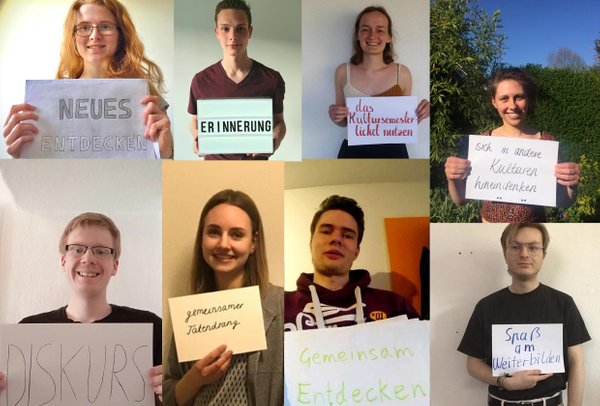 NEUES
ENTDECKEN
ERINNERUNG
das
Kultursemester
ticket nutzen
sich in andere
Kulturen
hineindenken
DISKURS
gemeinsamer
Tatendrang
Gemeinsam
Entdecken
Spaß
am
Weiterbilden